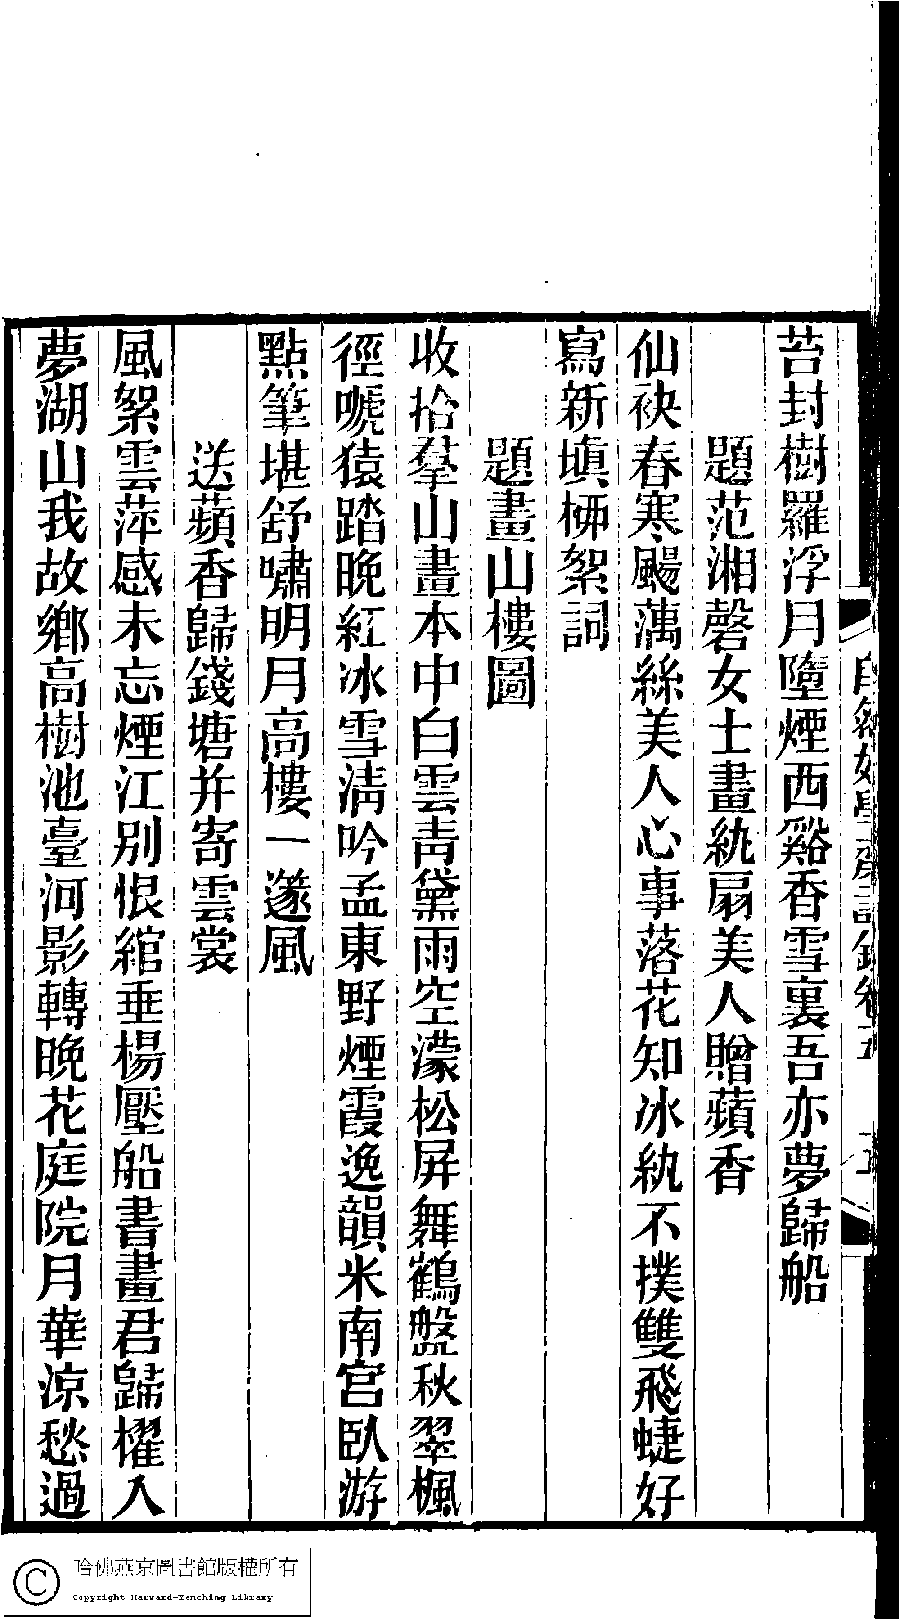 苔封樹羅浮月墮煙西谿香雪裏吾亦夢歸船
題范湘磬女士畫紈扇美人贈蘋香
仙袂春寒颺藕絲美人心事落花知冰紈不撲雙飛蜨好
寫新塡桺絮詞
題畫山樓圖
收拾羣山畫本中白雲靑黛雨空濛松屏舞鶴盤秋翠楓
徑嗁猿踏晚紅冰雪淸吟孟東野煙霞逸韻米南宮臥游
點筆堪舒嘯明月高樓一邃風
送蘋香歸錢塘并寄雲裳
風絮雲萍感未忘煙江別恨綰垂楊壓船書畫君歸櫂入
夢湖山我故鄉高樹池臺河影轉晚花庭院月華涼愁過
自然好學齋詩鈔卷五
哈佛燕京圖書館版權所有
Copyright Harvard-Yenching Library